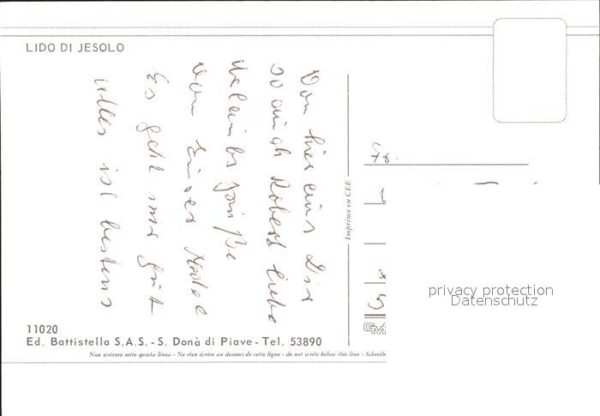 LIDO DI JESOLO
Von hier aus Dir
so auch Robert liebe
Grüße
von Eurer
Es geht uns gut
alles ist bestens
Imprimé en C.E.E.
privacy protection
Datenschutz
11020
Ed. Battistella S.A.S. - S. Donà di Piave - Tel. 53890
Non scrivere sotto questa linea - Ne rien écrire au dessous de cette ligne - do not write below this line - Schreib